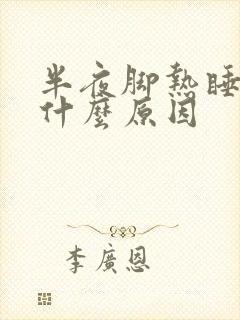 半夜脚熱睡
什麼原因
李廣恩